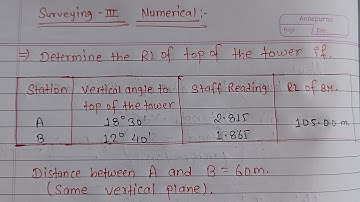 Surveying - III Numerical:-
Annapurna
Page
Date
⇒ Determine the RL of top of the tower if.
Station Vertical angle to top of the tower Staff Reading RL of BM.
A 18° 30' 2.815 105.00 m
B 12° 40' 1.865
Distance between A and B = 60m.
(Same vertical plane).